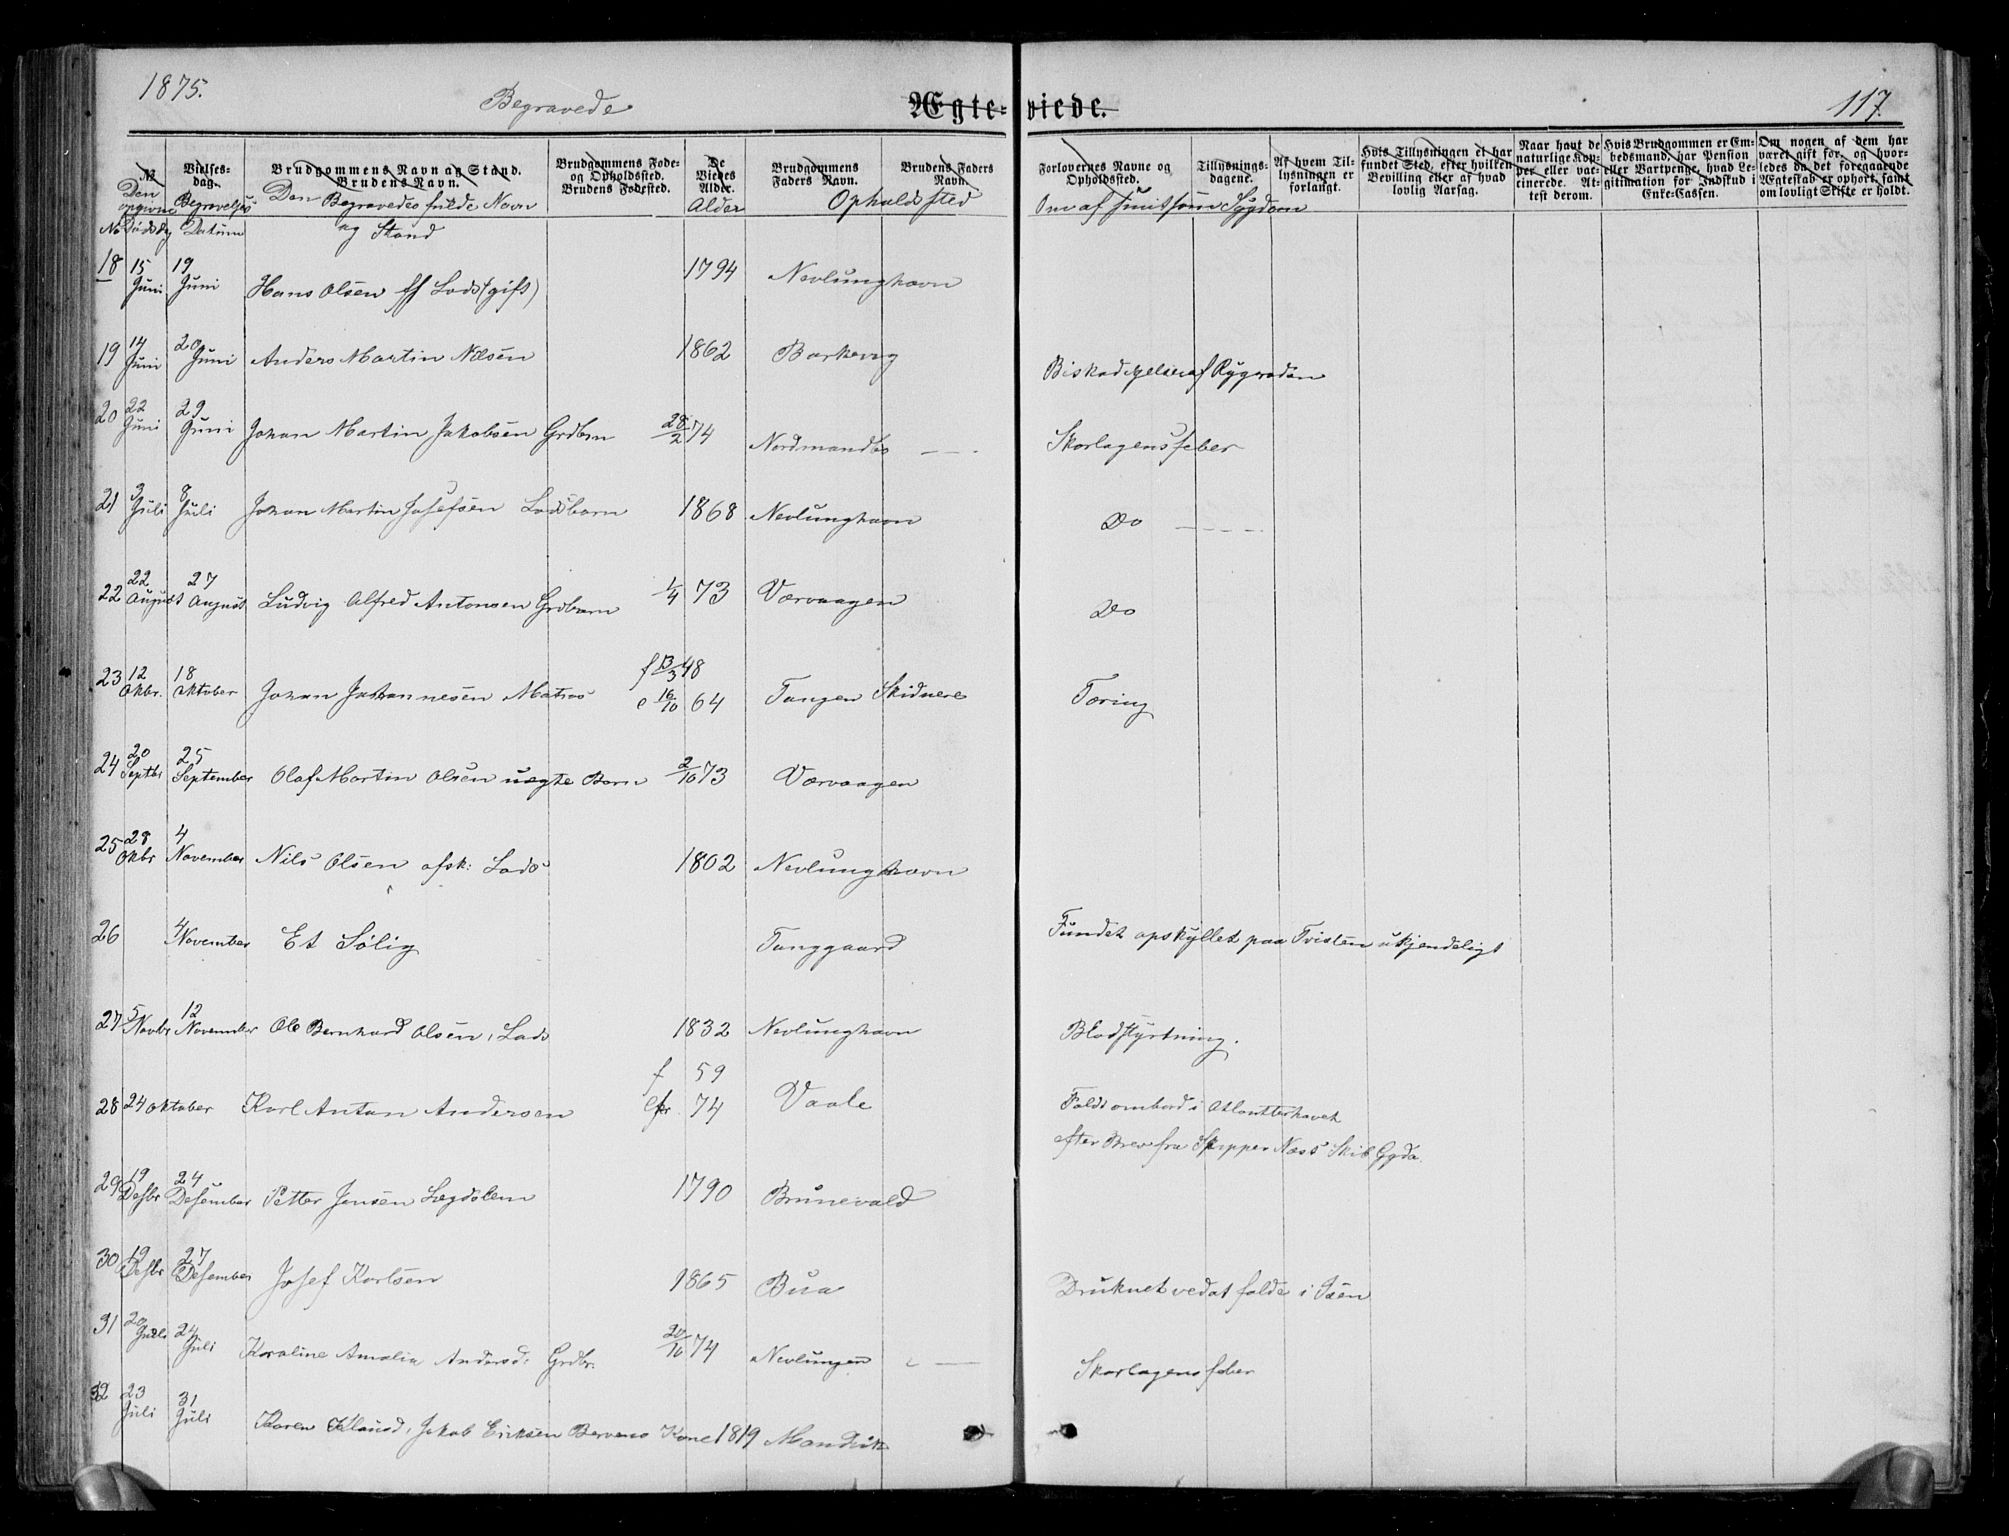 1875.
Begravede
Ægte-viede.
117.
No Vielses-dag. Brudgommens Navn og Stand. Brudens Navn. Brudgommens Føde- og Opholdssted. Brudens Fødested. De Viedes Alder. Brudgommens Faders Navn. Brudens Faders Navn. Forlovernes Navne og Opholdssted. Tillysnings-dagene. Af hvem Tillysningen er forlangt. Hvis Tillysningen ei har fundet Sted, efter hvilken Bevilling eller af hvad lovlig Aarsag. Naar havt de naturlige Kopper eller vaccinerede. Attest derom. Hvis Brudgommen er Embedsmand, har Pension eller Vartpenge, hvad Legitimation for Indskud i Enke-Cassen. Om nogen af dem har været gift før, og hvorledes da det foregaaende Ægteskab er ophørt, samt om lovligt Skifte er holdt.
No Den opgivne Dødsdag Begravelses Datum Den Begravedes fulde Navn og Stand Alder Opholdsted Om af smitsom Sygdom
18 15 Juni 19 Juni Hans Olsen Lods (gift) 1794 Nevlunghavn
19 14 Juni 20 Juni Anders Martin Nilsen 1862 Barkevig Beskadigelse af Rygraden
20 22 Juni 29 Juni Johan Martin Jakobsen Grdbrn 28/2 74 Nordmandbs Skarlagensfeber
21 3 Juli 8 Juli Johan Martin Josefsen Lodsbarn 1868 Nevlunghavn Do
22 22 August 27 August Ludvig Alfred Antonsen Grdbarn 1/4 73 Værvaagen Do
23 12 Okbr. 18 Oktober Johan Johannesen Matros f 13/3 48 c 16/10 64 Tangen Skidnere Tæring
24 20 Septbr 25 September Olaf Martin Olsen uægte Barn 2/10 73 Værvaagen
25 28 Okbr 4 November Nils Olsen afsk: Lods 1802 Nevlunghavn
26 4 November Et Sølig Tanggaard Fundet opskyllet paa Tvisten ukjendeligt
27 5 Novbr 12 November Ole Bernhard Olsen, Lods 1832 Nevlunghavn Blodstyrtning.
28 24 Oktober Karl Anton Andersen f 59 cfr. 74 Vaale Faldt ombord i Atlantterhavet
efter Brev fra Skipper Næss Skib Gyda.
29 19 Desbr 24 Desember Petter Jensen Lægdslem 1790 Brunevald
30 19 Desbr 27 Desember Josef Karlsen 1865 Bua Druknet ved at falde i Søen
31 20 Juli 24 Juli Karoline Amalia Andersd: Grdbr. 20/10 74 Nevlungen Skarlagensfeber
32 23 Juli 31 Juli Karen Klausd, Jakob Eriksen Bervens Kone 1819 Mandvik